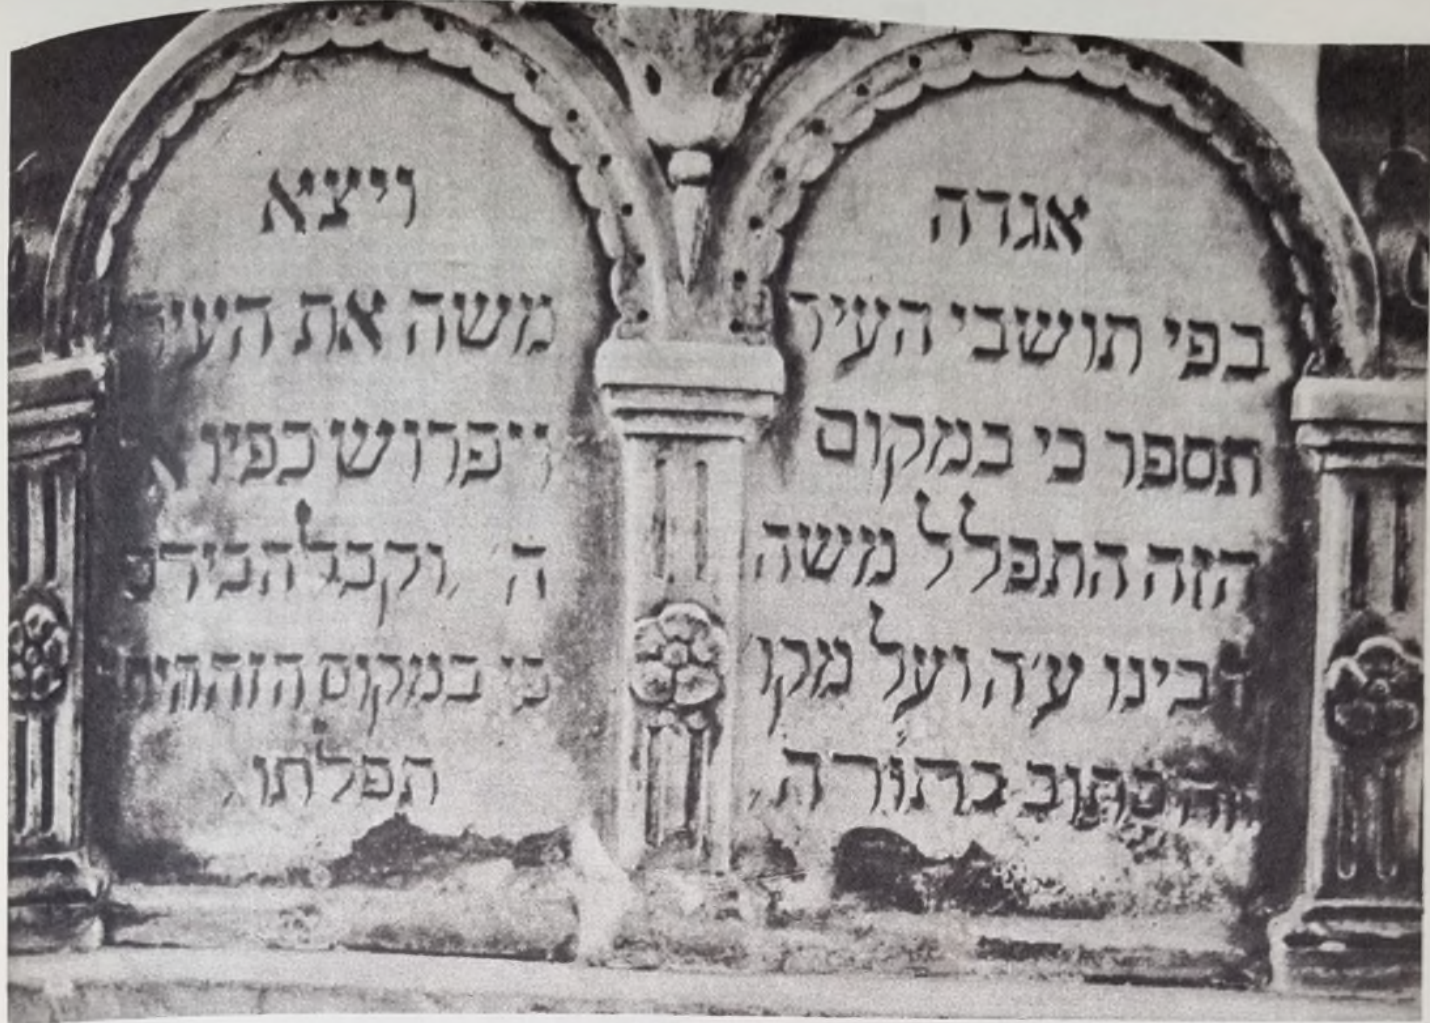 אגדה
בפי תושבי העיר
תספר כי במקום
הזה התפלל משה
רבינו ע'ה ועל מקו
כתוב בתורה
ויצא
משה את העיר
ויפרוש כפיו
ה' וקבלה
כי במקום הזה
תפלתו